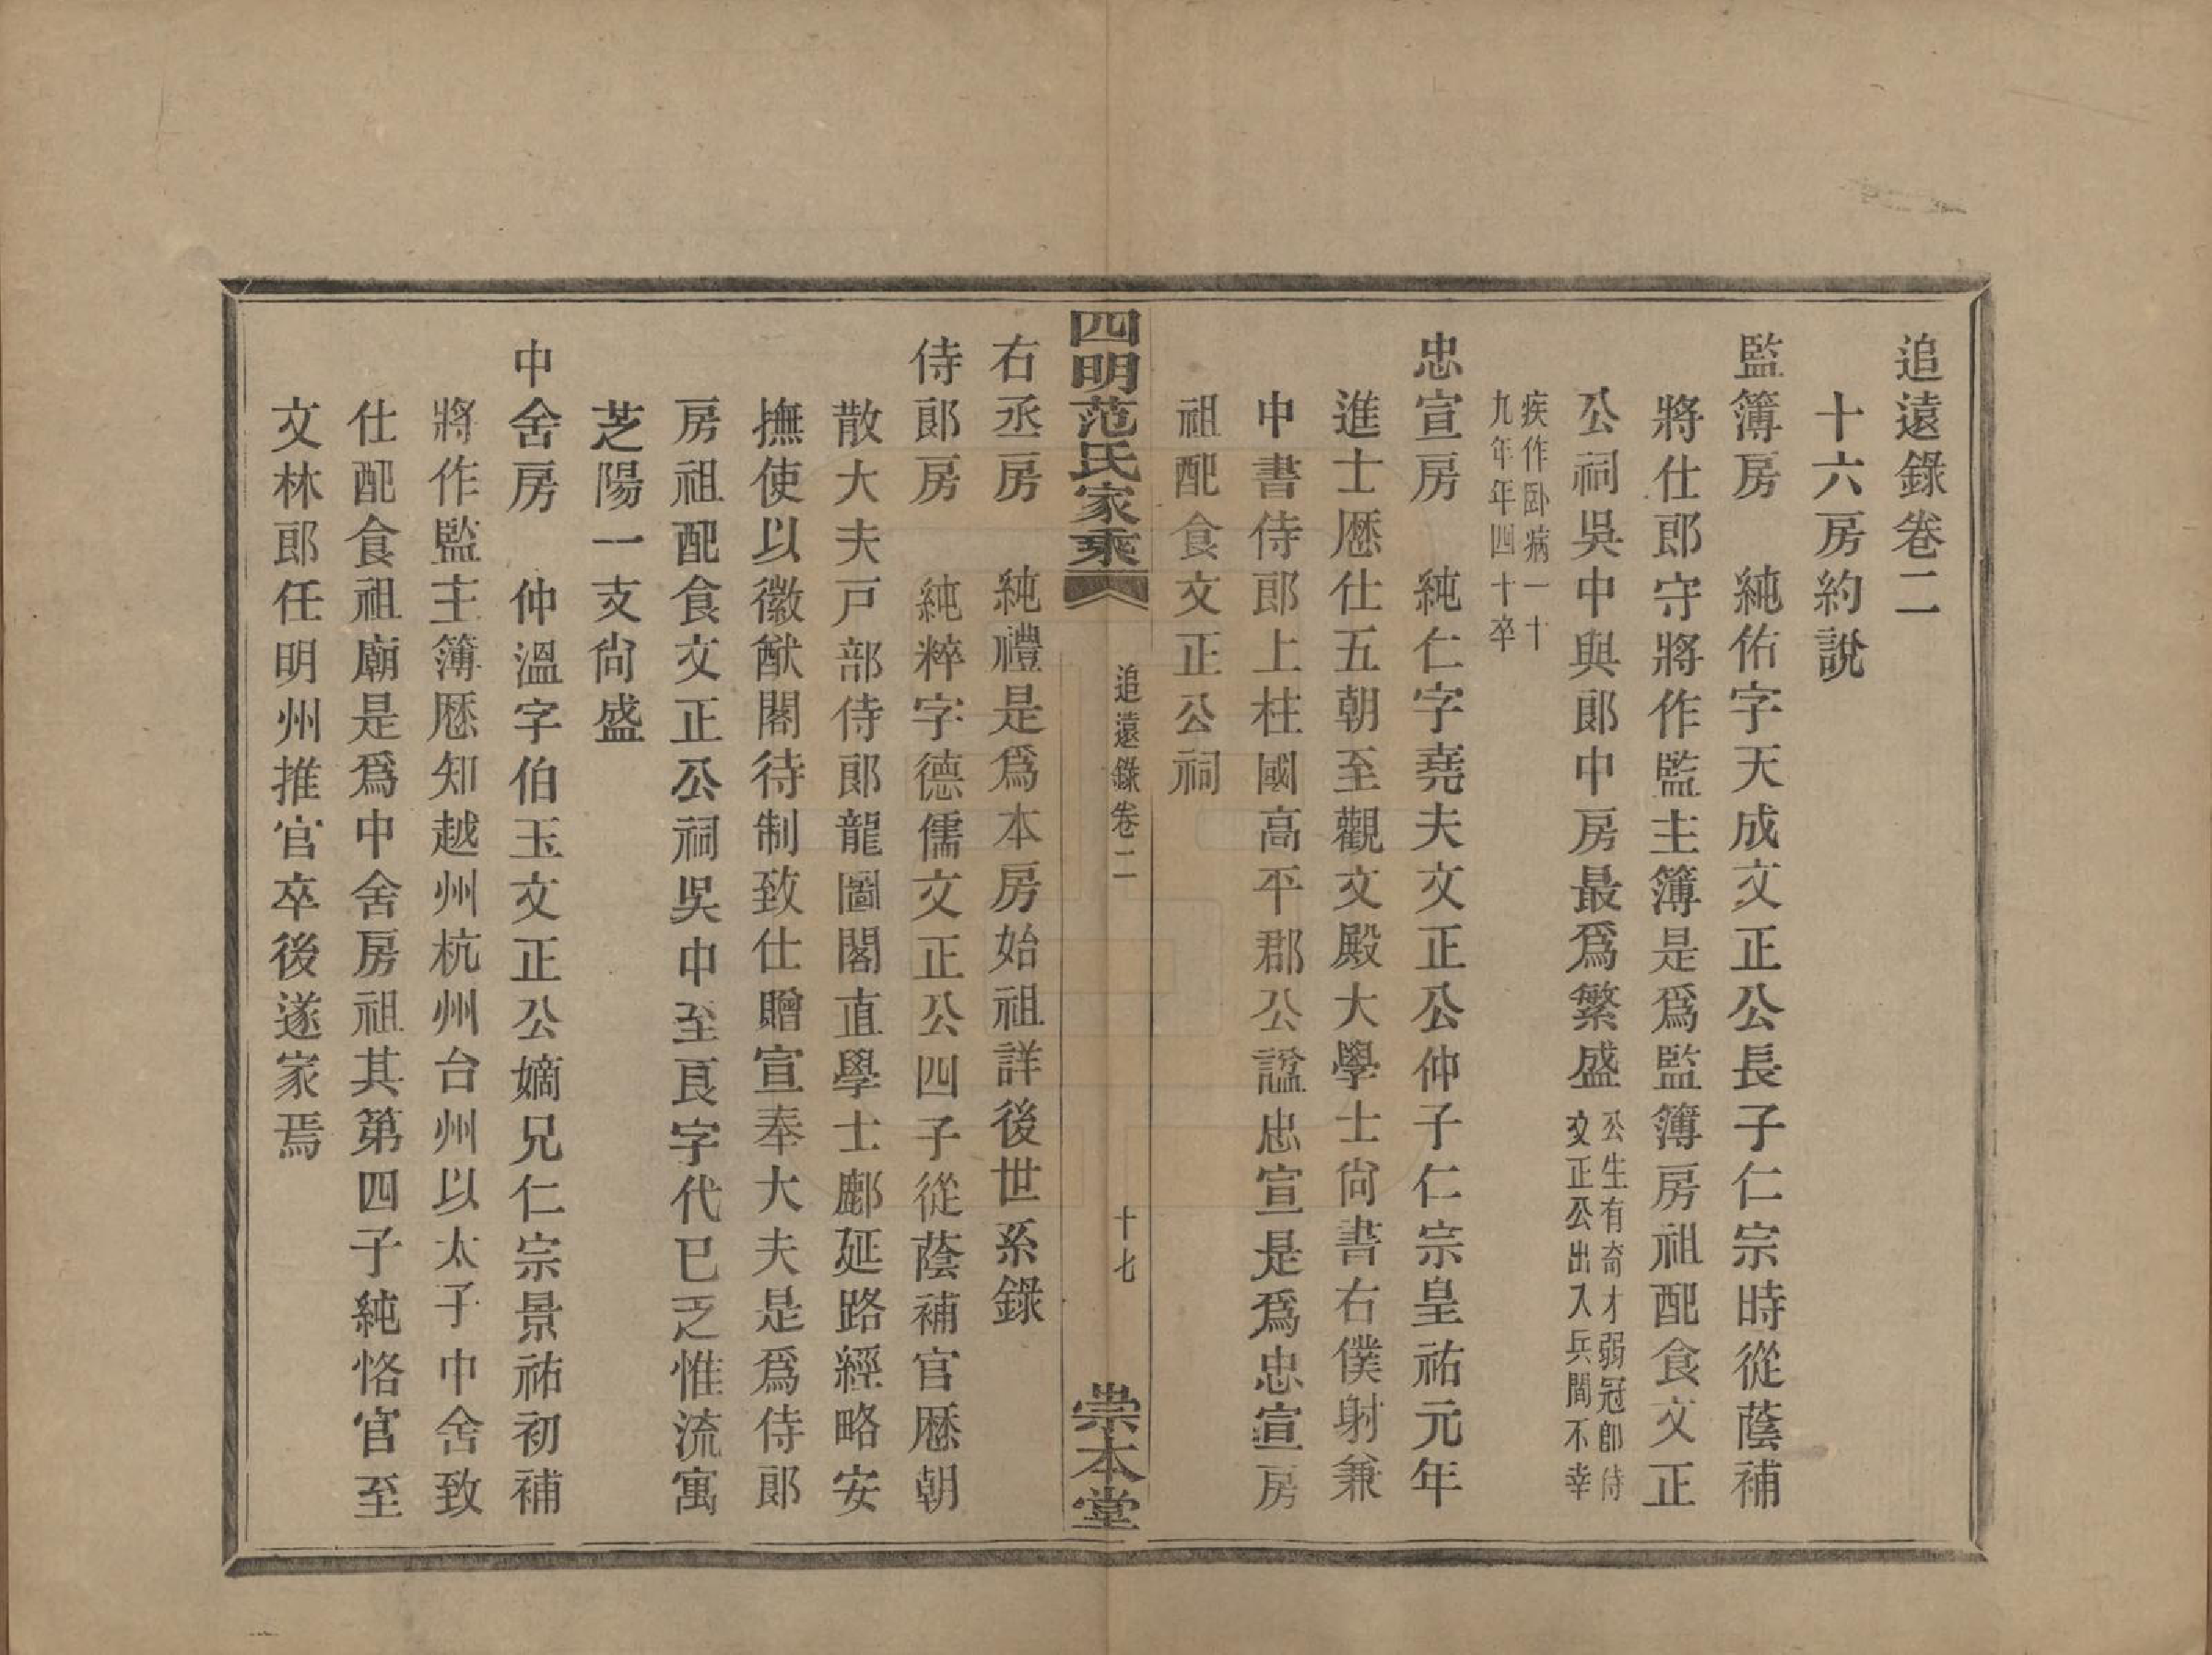 追遠錄卷二
十六房約說
監簿房　純佑字天成文正公長子仁宗時從蔭補
將仕郎守將作監主簿是爲監簿房祖配食文正
公祠吳中與郎中房最爲繁盛公生有奇才弱冠卽侍
文正公出入兵間不幸
疾作卧病一十
九年年四十卒
忠宣房　純仁字堯夫文正公仲子仁宗皇祐元年
進士歷仕五朝至觀文殿大學士尙書右僕射兼
中書侍郎上柱國高平郡公諡忠宣是爲忠宣房
祖配食文正公祠
四明范氏家乘　追遠錄卷二　十七　崇本堂
右丞房　純禮是爲本房始祖詳後世系錄
侍郎房　純粹字德儒文正公四子從蔭補官歷朝
散大夫戸部侍郎龍圖閣直學士鄜延路經略安
撫使以徽猷閣待制致仕贈宣奉大夫是爲侍郎
房祖配食文正公祠吳中至良字代已乏惟流寓
芝陽一支尙盛
中舍房　仲溫字伯玉文正公嫡兄仁宗景祐初補
將作監主簿歷知越州杭州台州以太子中舍致
仕配食祖廟是爲中舍房祖其第四子純恪官至
文林郎任明州推官卒後遂家焉